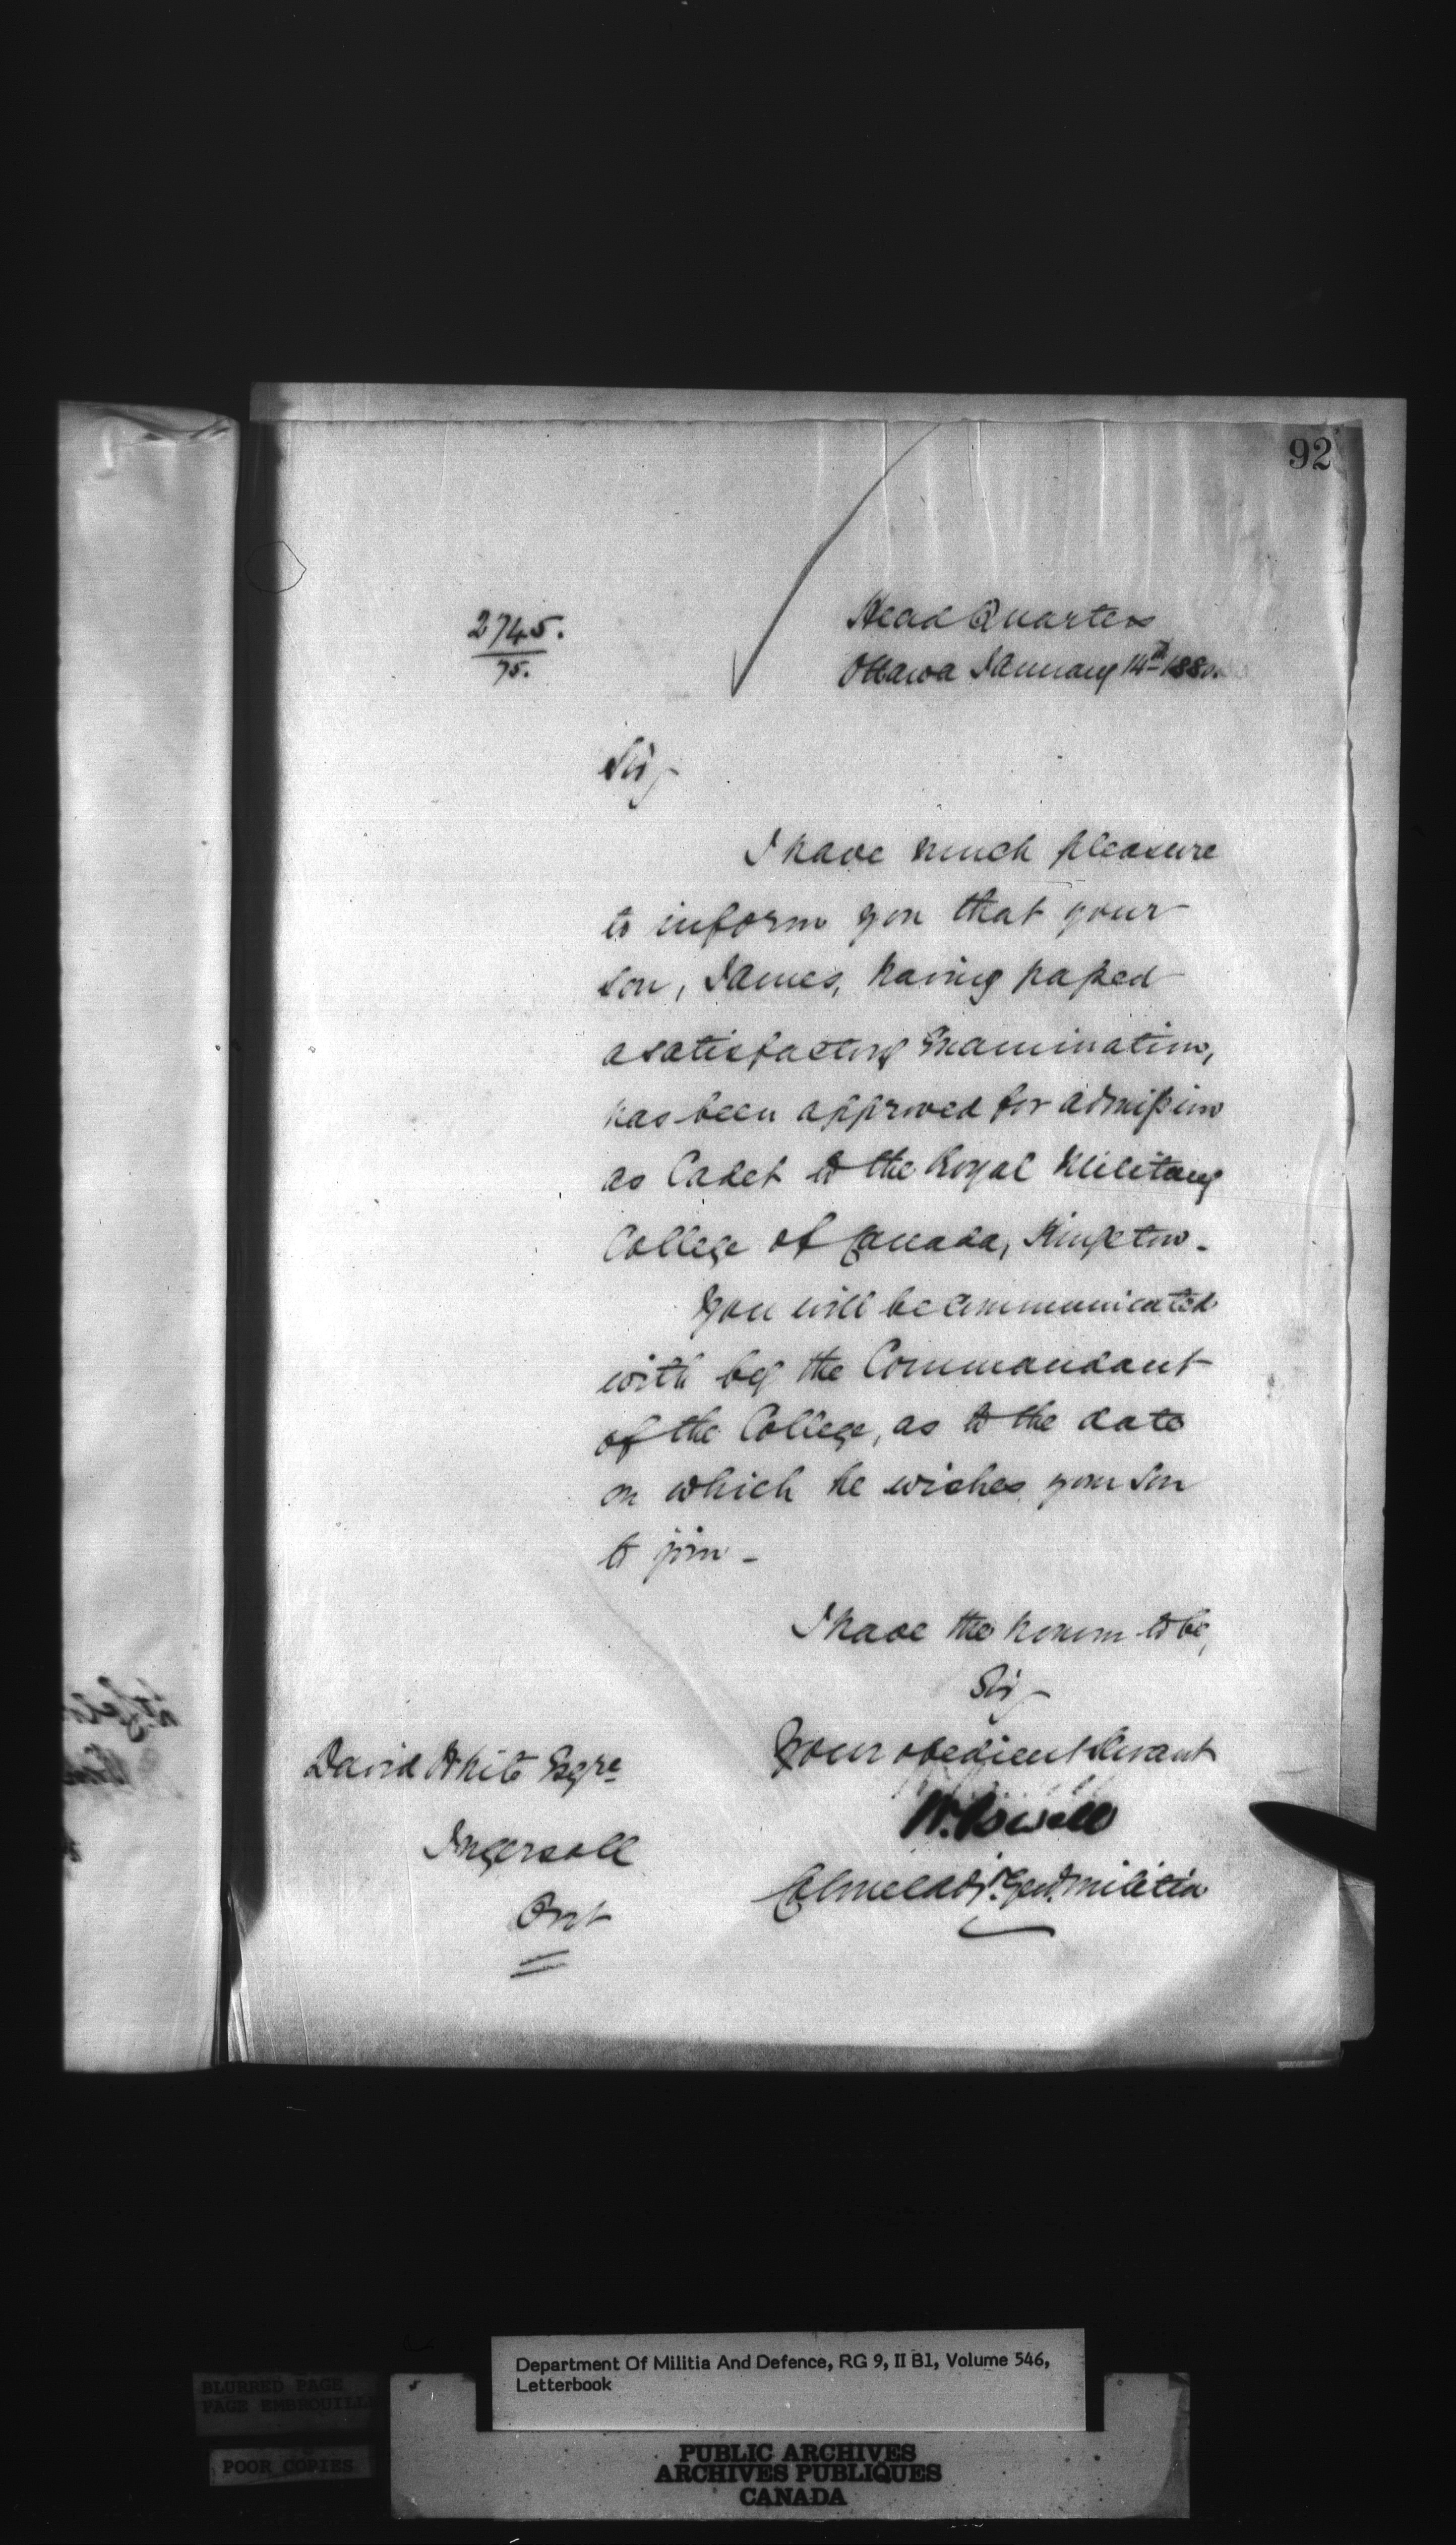 92
2745.
75.
Head Quarters
Ottawa January 14th 1880.
Sir,
I have much pleasure
to inform you that your
son, James, having passed
a satisfactory Examination,
has been approved for admission
as Cadet to the Royal Military
College of Canada, Kingston.
You will be communicated
with by the Commandant
of the College, as to the date
on which he wishes your son
to join -
I have the honour to be,
Sir,
Your obedient Servant
W. Powell
Colonel Adjt. Genl. Militia
David White Esqre
Ingersoll
Ont
Department Of Militia And Defence, RG 9, II B1, Volume 546,
Letterbook
BLURRED PAGE
PAGE EMBROUILL
POOR COPIES
PUBLIC ARCHIVES
ARCHIVES PUBLIQUES
CANADA